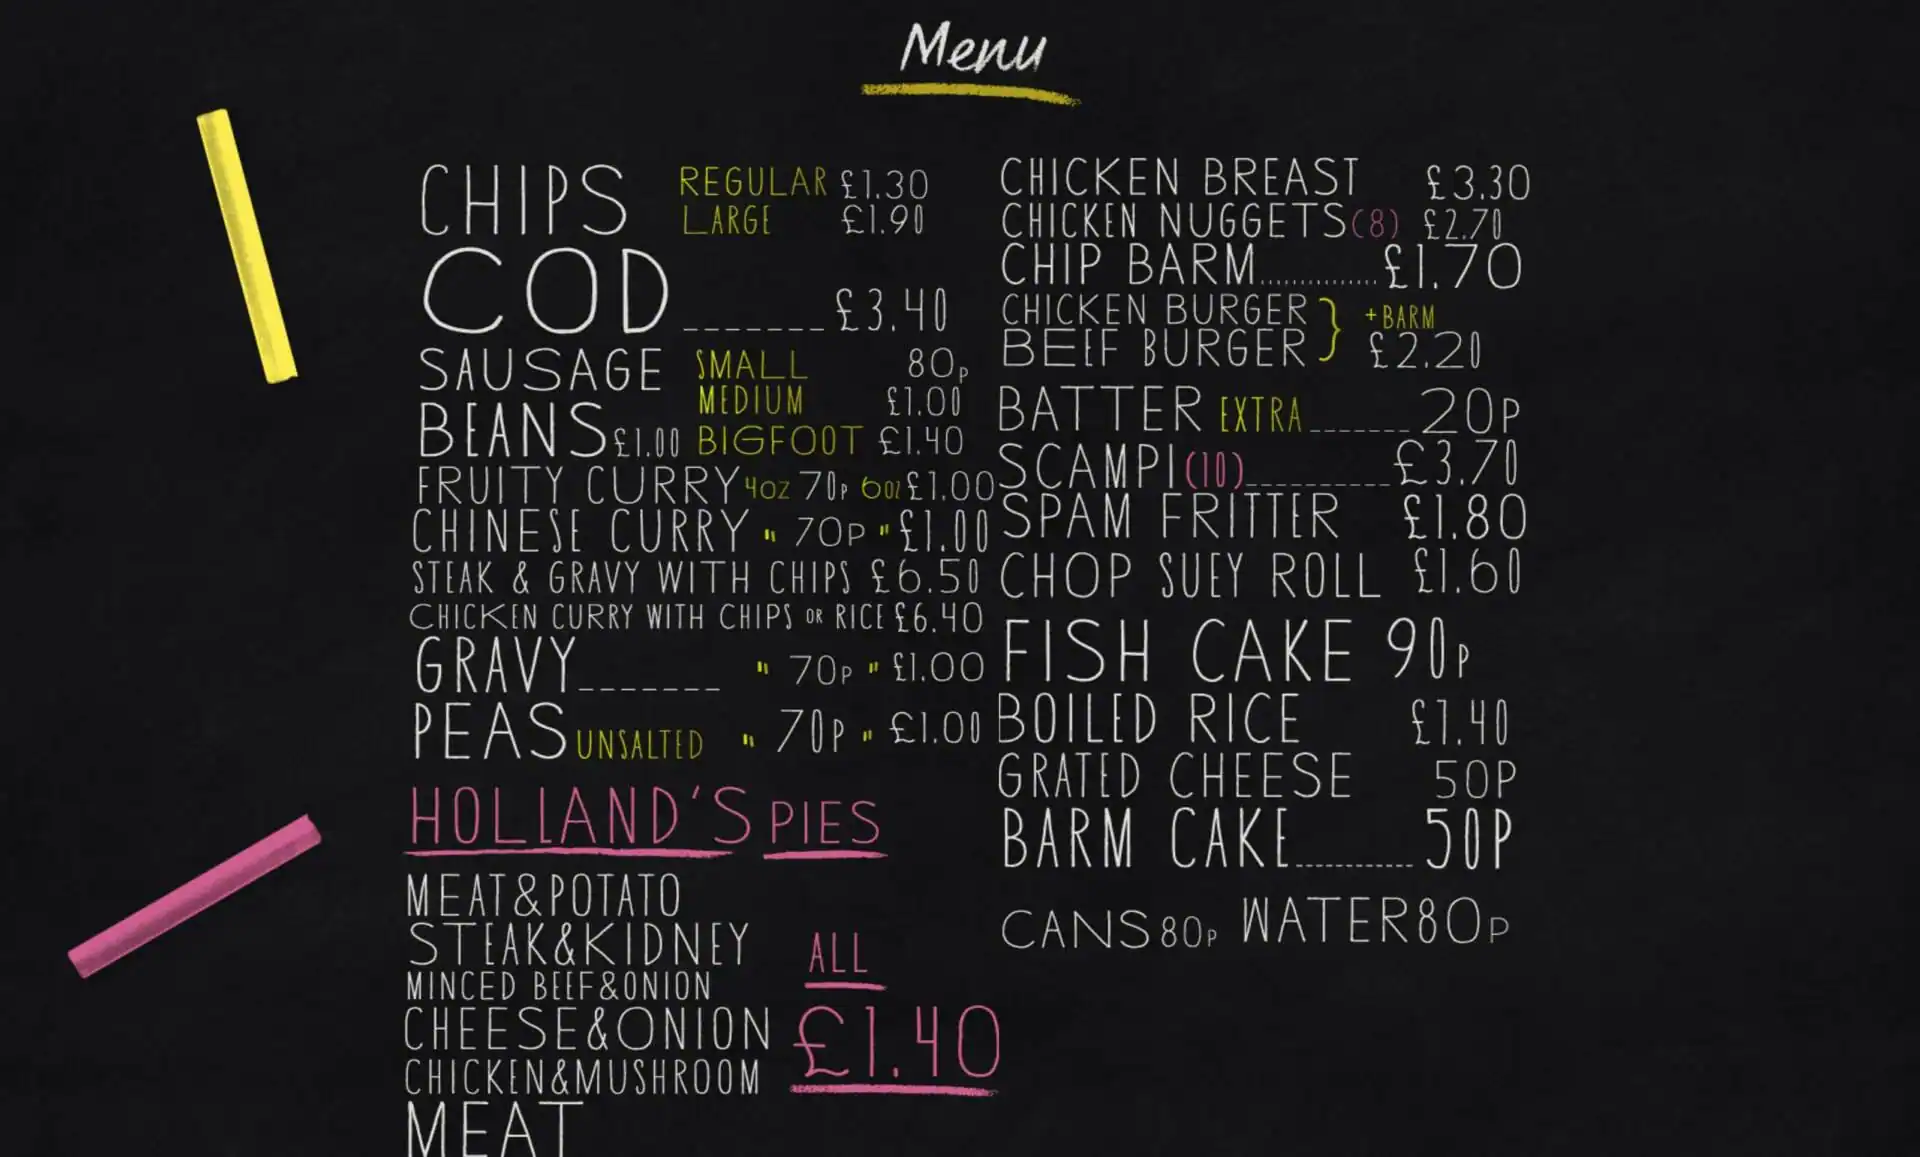 Menu
CHIPS REGULAR £1.30
LARGE £1.90
COD £3.40
SAUSAGE SMALL 80p
MEDIUM £1.00
BIGFOOT £1.40
BEANS £1.00
FRUITY CURRY 4oz 70p 6oz £1.00
CHINESE CURRY " 70P " £1.00
STEAK & GRAVY WITH CHIPS £6.50
CHICKEN CURRY WITH CHIPS OR RICE £6.40
GRAVY " 70P " £1.00
PEAS UNSALTED " 70P " £1.00
HOLLAND'S PIES
MEAT&POTATO
STEAK&KIDNEY
MINCED BEEF&ONION
CHEESE&ONION
CHICKEN&MUSHROOM
MEAT
ALL
£1.40
CHICKEN BREAST £3.30
CHICKEN NUGGETS(8) £2.70
CHIP BARM £1.70
CHICKEN BURGER
BEEF BURGER
+BARM
£2.20
BATTER EXTRA 20P
SCAMPI(10) £3.70
SPAM FRITTER £1.80
CHOP SUEY ROLL £1.60
FISH CAKE 90p
BOILED RICE £1.40
GRATED CHEESE 50P
BARM CAKE 50P
CANS 80p WATER 80p